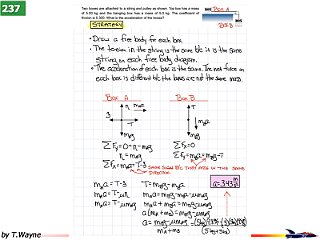 237
Two boxes are attached to a string and pulley as shown. Top box has a mass
of 5.00 kg and the hanging box has a mass of
friction is 0.300. What is the acceleration of the boxes?
BOX A
BOX B
STRATEGY
• Draw a free body for each box
• The tension in the string is the same b/c it is the same
string on each free body diagram.
• The acceleration of each box is the same. The net force on
each box is different b/c the boxes are not the same mass.
Box A
Box B
n
T
T
m_A g
m_B g
ΣF_y = 0 = n - m_A g
n = m_A g
ΣF_x = m_A a = T - f
ΣF_x = 0
ΣF_y = m_B a = m_B g - T
SAME SIGN B/C THEY ARE IN THE SAME
DIRECTION
m_A a = T - f
m_A a = T - μn
m_A a = T - μm_A g
T = m_B g - m_B a
m_A a = m_B g - m_B a - μm_A g
m_A a + m_B a = m_B g - μm_A g
a(m_A + m_B) = m_B g - μm_A g
by T.Wayne